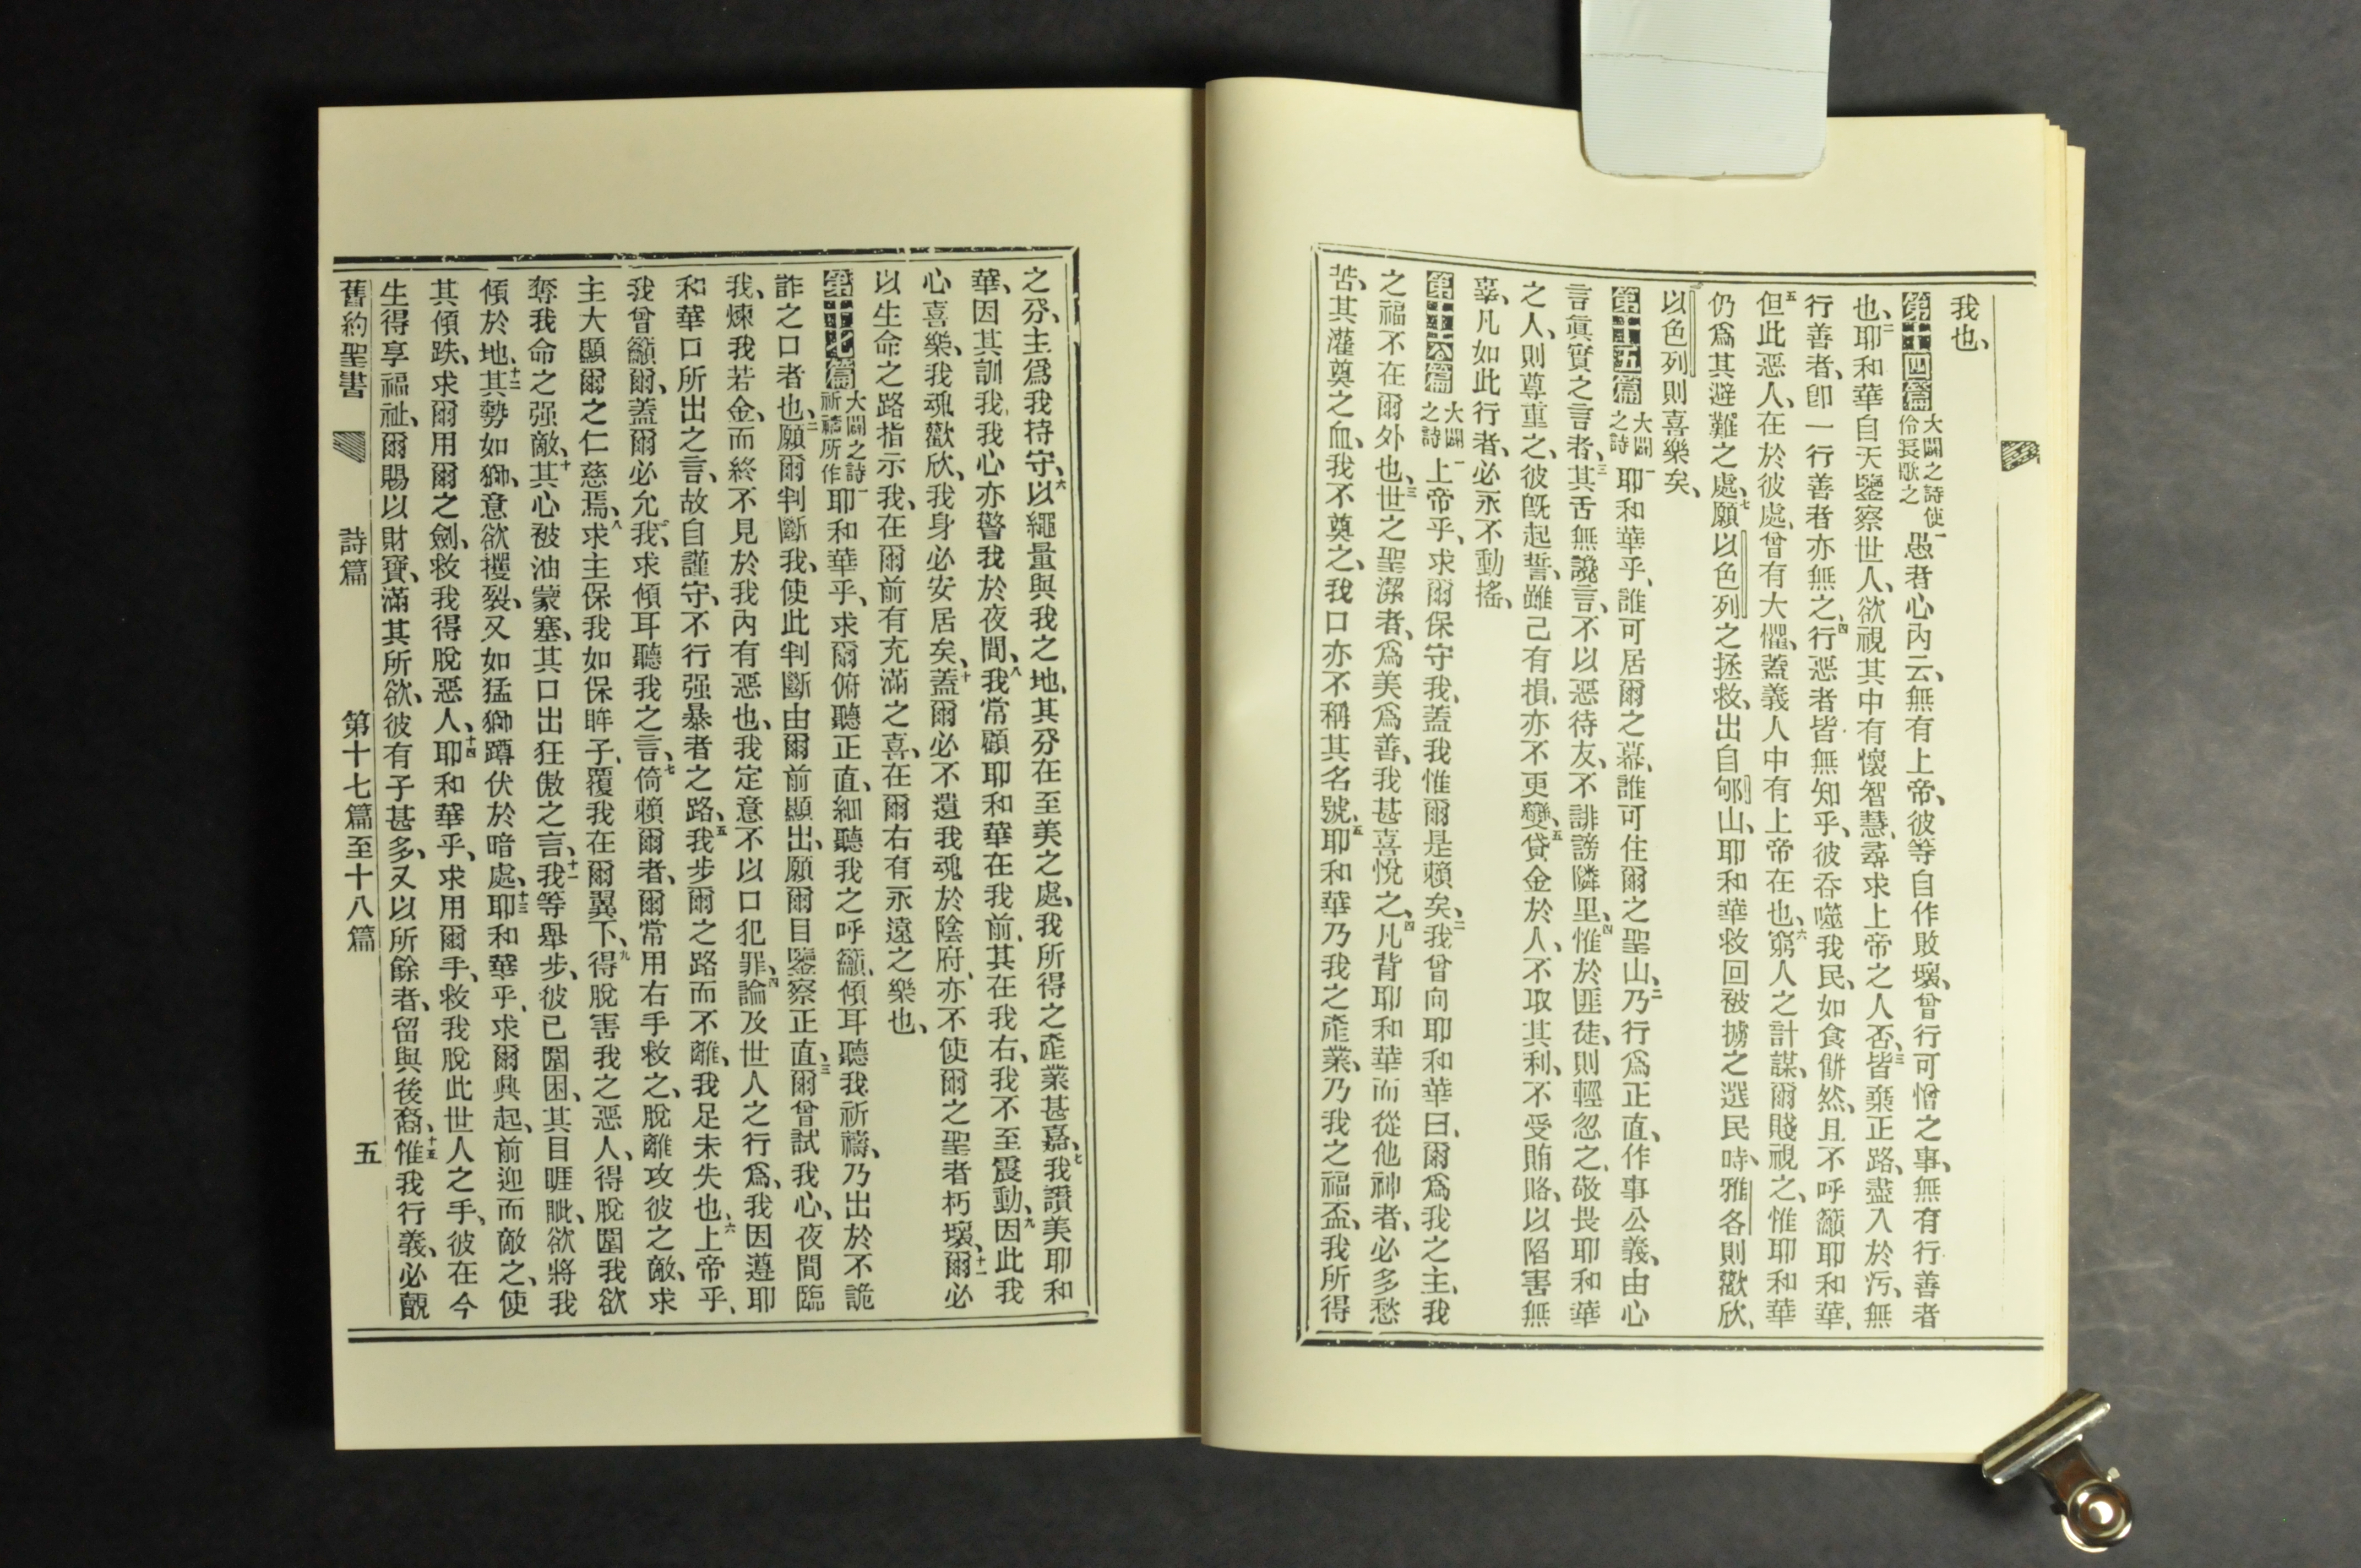 我也、
第十四篇 大闢之詩使伶長歌之 一愚者心內云、無有上帝、彼等自作敗壞、曾行可憎之事、無有行善者
也、二耶和華自天鑒察世人、欲視其中有懷智慧、尋求上帝之人否、三皆棄正路、盡入於汚、無
行善者、卽一行善者亦無之、四行惡者皆無知乎、彼吞噬我民、如食餅然、且不呼籲耶和華、
五但此惡人、在於彼處、曾有大懼、蓋義人中有上帝在也、六窮人之計謀、爾賤視之、惟耶和華
仍爲其避難之處、七願以色列之拯救、出自郇山、耶和華救回被擄之選民時、雅各則歡欣、
以色列則喜樂矣、
第十五篇 大闢之詩 一耶和華乎、誰可居爾之幕、誰可住爾之聖山、二乃行爲正直、作事公義、由心
言眞實之言者、三其舌無讒言、不以惡待友、不誹謗隣里、四惟於匪徒、則輕忽之、敬畏耶和華
之人、則尊重之、彼旣起誓、雖己有損、亦不更變、五貸金於人、不取其利、不受賄賂、以陷害無
辜、凡如此行者、必永不動搖、
第十六篇 大闢之詩 一上帝乎、求爾保守我、蓋我惟爾是賴矣、二我曾向耶和華曰、爾爲我之主、我
之福不在爾外也、三世之聖潔者、爲美爲善、我甚喜悅之、四凡背耶和華而從他神者、必多愁
苦、其灌奠之血、我不奠之、我口亦不稱其名號、五耶和華乃我之產業、乃我之福盃、我所得
之分、主爲我持守、六以繩量與我之地、其分在至美之處、我所得之產業甚嘉、七我讚美耶和
華、因其訓我、我心亦警我於夜間、八我常顧耶和華在我前、其在我右、我不至震動、九因此我
心喜樂、我魂歡欣、我身必安居矣、十蓋爾必不遺我魂於陰府、亦不使爾之聖者朽壞、十一爾必
以生命之路指示我、在爾前有充滿之喜、在爾右有永遠之樂也、
第十七篇 大闢之詩祈禱所作 一耶和華乎、求爾俯聽正直、細聽我之呼籲、傾耳聽我祈禱、乃出於不詭
詐之口者也、二願爾判斷我、使此判斷由爾前顯出、願爾目鑒察正直、三爾曾試我心、夜間臨
我、煉我若金、而終不見於我內有惡也、我定意不以口犯罪、四論及世人之行爲、我因遵耶
和華口所出之言、故自謹守、不行强暴者之路、五我步爾之路而不離、我足未失也、六上帝乎、
我曾籲爾、蓋爾必允我、求傾耳聽我之言、七倚賴爾者、爾常用右手救之、脫離攻彼之敵、求
主大顯爾之仁慈焉、八求主保我如保眸子、覆我在爾翼下、九得脫害我之惡人、得脫圍我欲
奪我命之强敵、十其心被油蒙塞、其口出狂傲之言、十一我等舉步、彼已圍困、其目睚眦、欲將我
傾於地、十二其勢如獅、意欲攫裂、又如猛獅蹲伏於暗處、十三耶和華乎、求爾興起、前迎而敵之、使
其傾跌、求爾用爾之劍、救我得脫惡人、十四耶和華乎、求用爾手、救我脫此世人之手、彼在今
生得享福祉、爾賜以財寶、滿其所欲、彼有子甚多、又以所餘者、留與後裔、十五惟我行義、必覿
舊約聖書 詩篇 第十七篇至十八篇 五